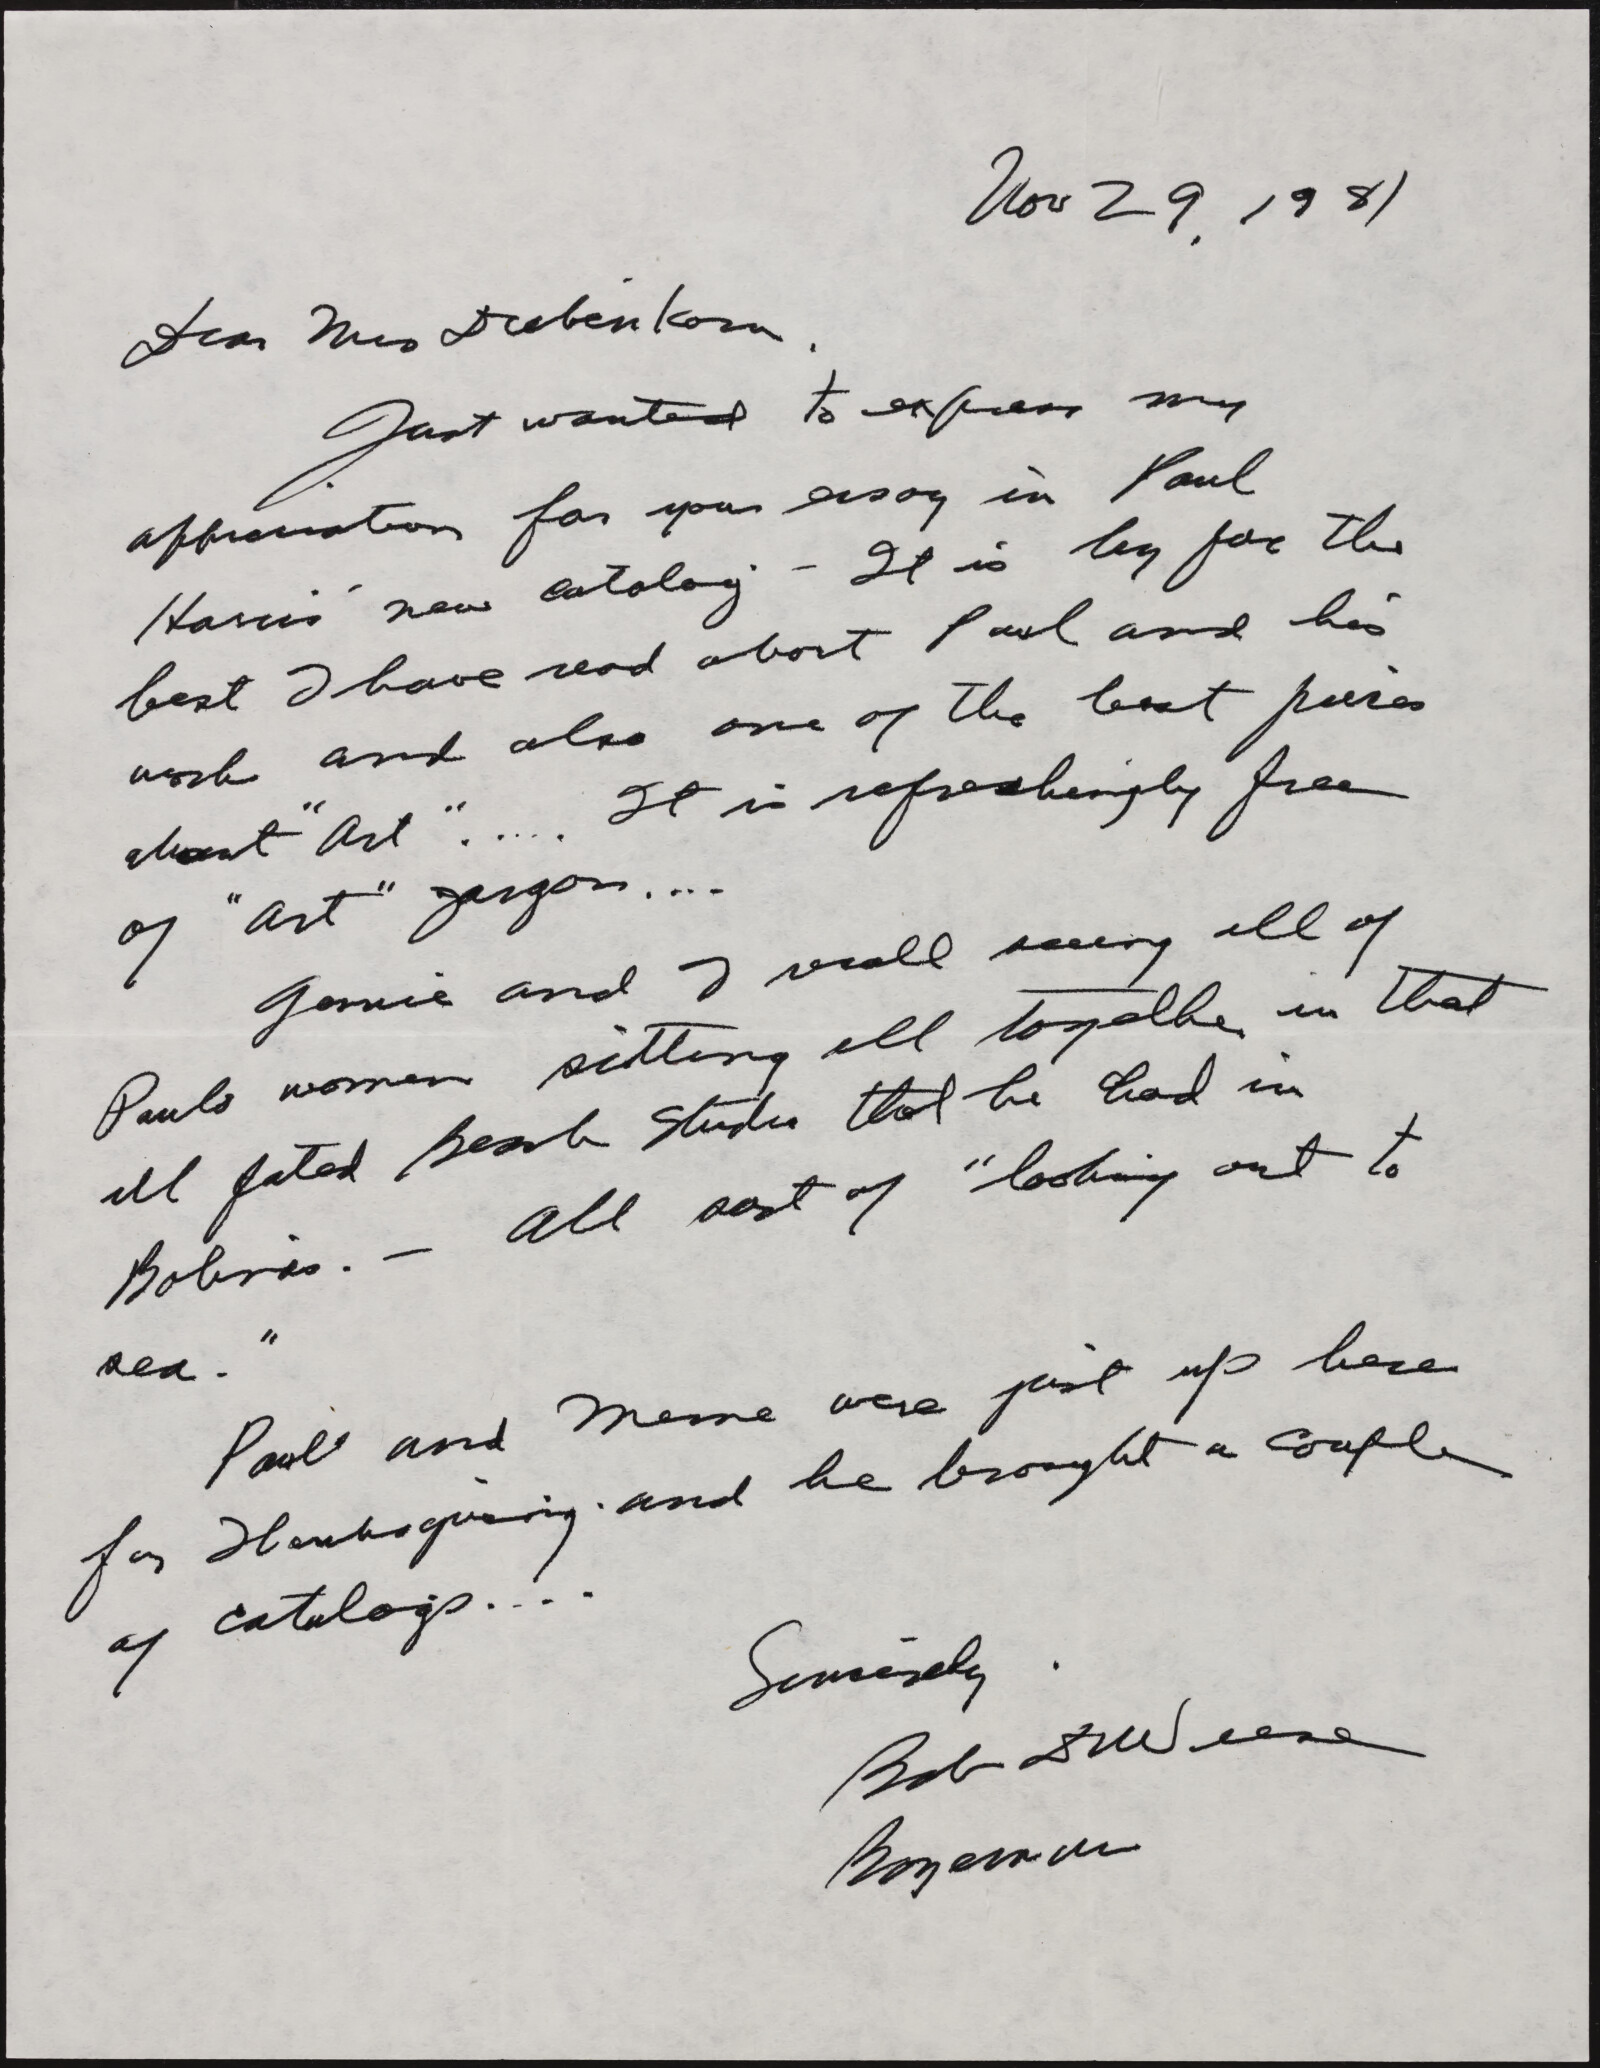 Nov 29, 1981
Dear Mrs Diebenkorn,
Just wanted to express my
appreciation for your essay in Paul
Harris' new catalog - It is by far the
best I have read about Paul and his
work and also one of the best pieces
about "Art"..... It is refreshingly free
of "art" jargon....
Gennie and I recall seeing all of
Pauls women sitting all together in that
ill fated Beach Studio that he had in
Bolinas. - All sort of "looking out to
sea."
Paul and Meme were just up here
for Thanksgiving and he brought a couple
of catalogs....
Sincerely,
Bob DeWeese
Bozeman